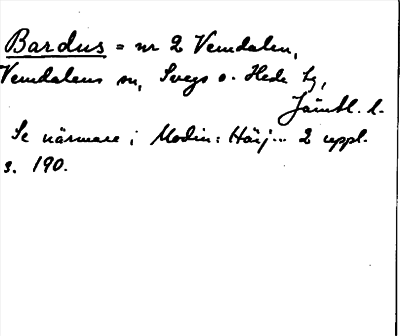 Bardus = nr 2 Vemdalen,
Vemdalens sn, Svegs o. Hede tg,
Jämtl. l.
Se närmare i Modin: Härj... 2 uppl.
s. 190.